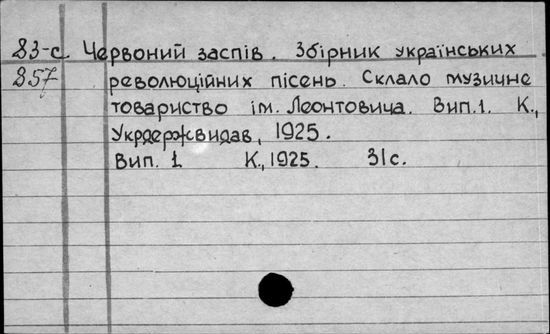 83-с Червоний заспів. Збірник українських
857 революційних пісень. Склало музичне
товариство ім. Леонтовича. Вип.1. К.,
Укрдержвидав, 1925.
Вип. 1 К., 1925. 31с.